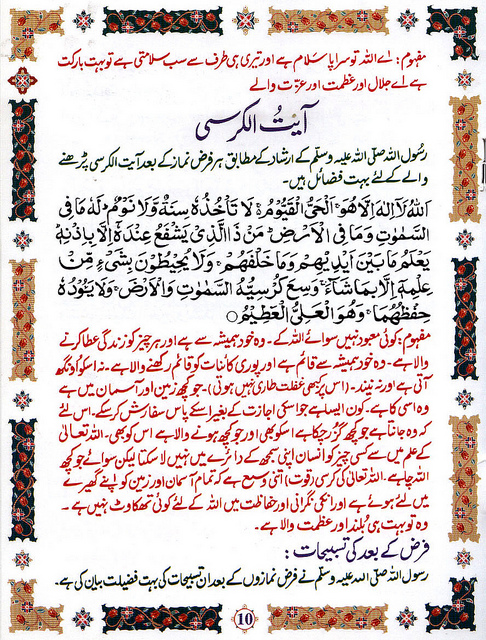 مفہوم: اے اللہ تو سراپا سلام ہے اور تیری ہی طرف سے سب سلامتی ہے تو بہت بارکت
ہے اے جلال اور عظمت اور عزّت والے
آیتُ الکرسی
رسُول اللہ صلی اللہ علیہ وسلم کے ارشاد کے مطابق ہر فرض نماز کے بعد آیت الکرسی پڑھنے
والے کے لئے بہت فضائل ہیں۔
اَللّٰهُ لَاۤ اِلٰهَ اِلَّا هُوَۚ اَلْحَیُّ الْقَیُّوْمُ ۚ لَا تَاْخُذُهٗ سِنَةٌ وَّلَا نَوْمٌ ؕ لَهٗ مَا فِی
السَّمٰوٰتِ وَمَا فِی الْاَرْضِ ؕ مَنْ ذَا الَّذِیْ یَشْفَعُ عِنْدَهٗۤ اِلَّا بِاِذْنِهٖ ؕ
یَعْلَمُ مَا بَیْنَ اَیْدِیْهِمْ وَمَا خَلْفَهُمْ ۚ وَلَا یُحِیْطُوْنَ بِشَیْءٍ مِّنْ
عِلْمِهٖۤ اِلَّا بِمَا شَآءَ ۚ وَسِعَ كُرْسِیُّهُ السَّمٰوٰتِ وَالْاَرْضَ ۚ وَلَا یَئُوْدُهٗ
حِفْظُهُمَا ۚ وَهُوَ الْعَلِیُّ الْعَظِیْمُ ○
مفہوم: کوئی معبود نہیں سوائے اللہ کے۔ وہ خود ہمیشہ سے ہے اور ہر چیز کو زندگی عطا کرنے
والا ہے۔ وہ خود ہمیشہ سے قائم ہے اور پوری کائنات کو قائم رکھنے والا ہے۔ نہ اسکو اُونگھ
آتی ہے اور نہ نیند۔ (اس پر کبھی غفلت طاری نہیں ہوتی)۔ جو کچھ زمین اور آسمان میں ہے
وہ اسی کا ہے۔ کون ایسا ہے جو اسکی اجازت کے بغیر اسکے پاس سفارش کر سکے۔ اس لئے
کہ وہ جانتا ہے جو کچھ گزر چکا ہے اسکو بھی اور جو کچھ ہونے والا ہے اس کو بھی۔ اللہ تعالیٰ
کے علم میں سے کسی چیز کو انسان اپنی سمجھ کے دائرے میں نہیں لا سکتا لیکن سوائے جو کچھ
اللہ چاہے۔ اللہ تعالیٰ کی کرسی (قوت) اتنی وسیع ہے کہ تمام آسمان اور زمین کو اپنے گھیرے
میں لئے ہوئے ہے اور انکی نگرانی اور حفاظت میں اللہ کے لئے کوئی تھکاوٹ نہیں ہے۔
وہ تو بہت ہی بُلند اور عظمت والا ہے۔
فرض کے بعد کی تسبیحات:
رسول اللہ صلی اللہ علیہ وسلم نے فرض نمازوں کے بعد ان تسبیحات کی بہت فضیلت بیان کی ہے۔
10